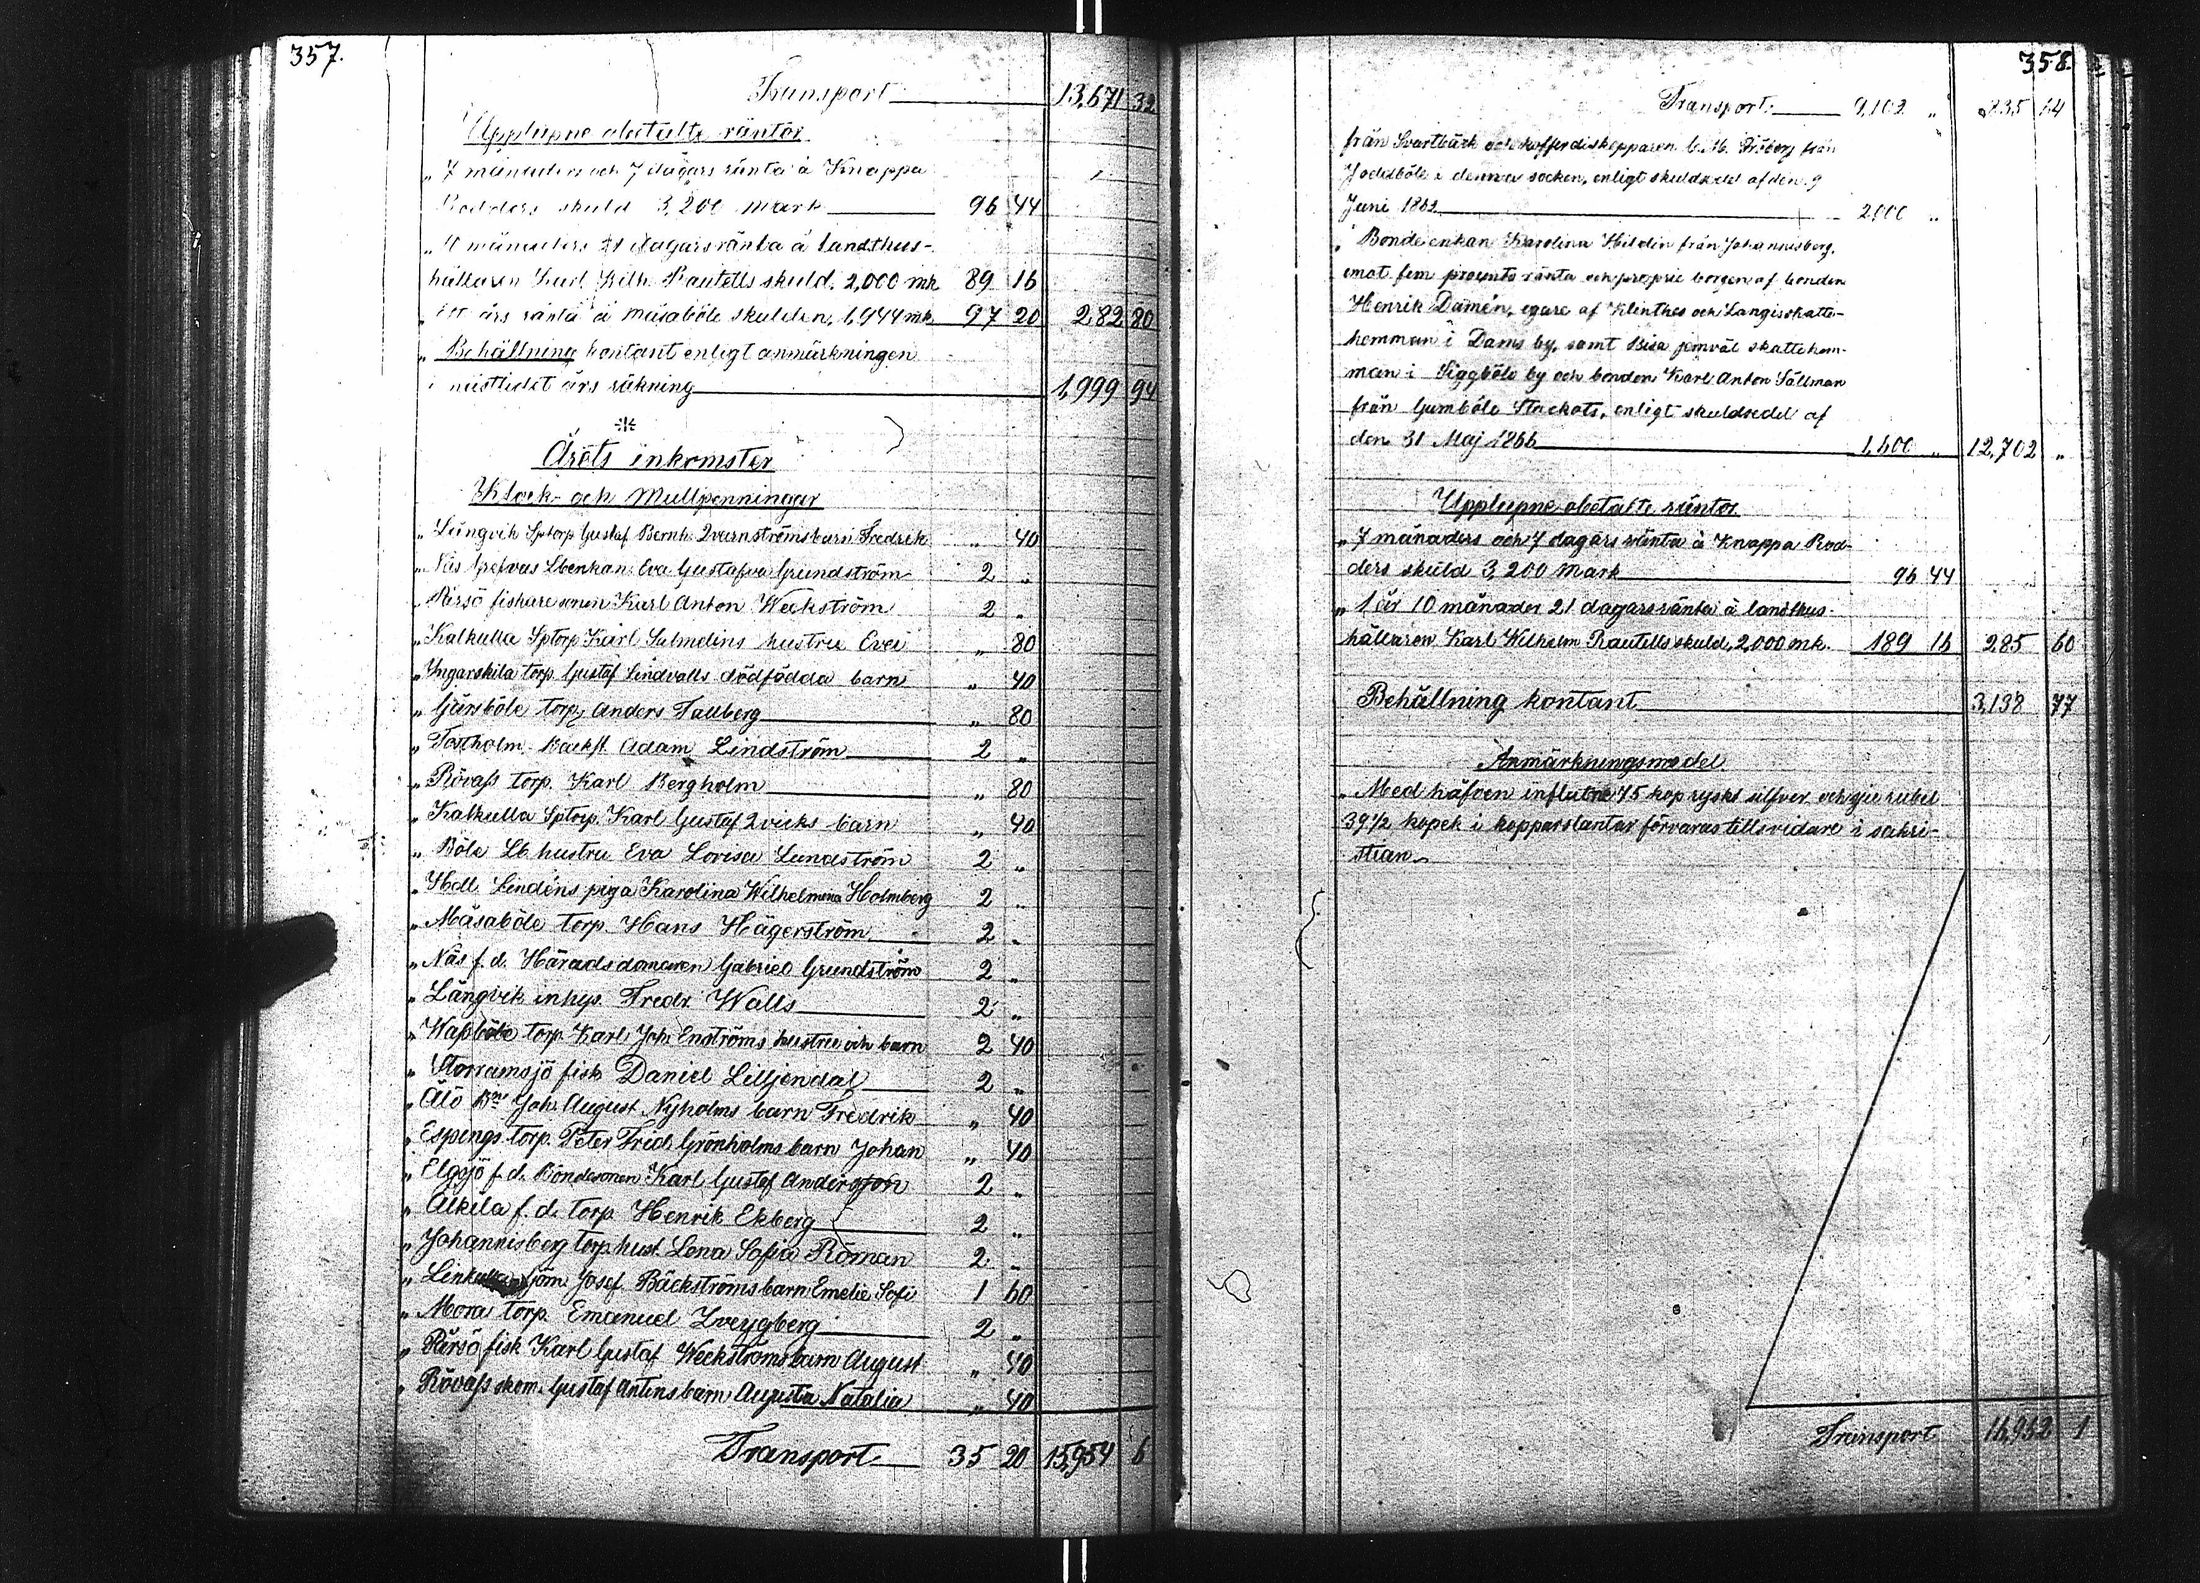 357.
Transport 13,671 32
Upplupne obetalte räntor
„ 7 månaders och 7 dagars ränta å Knappa
Rodders skuld 3,200 mark 96 44
„ 10 månaders 21 dagars ränta å landthus-
hållaren Karl Wilh. Rautells skuld, 2,000 mk. 89 16
„ ett års ränta å Måsaböle skulden, 1,944 mk. 97 20 282 80
„ Behållning kontant enligt anmärkningen
i nästledet års räkning 1,999 94
Årets inkomster
Klock- och Mullpenningar
„ Långvik Sptorp Gustaf Bernh. Qvarnströms barn Fredrik „ 40
„ Näs Grefvas Lbenkan Eva Gustafva Grundström 2 „
„ Pärsö fiskare sonen Karl Anton Weckström 2 „
„ Kalkulla Sptorp Karl Salmelins hustru Eva „ 80
„ Ingarskila torp. Gustaf Lindvalls dödfödda barn „ 40
„ Gårsböle torp. Anders Tallberg „ 80
„ Torholm Backst. Adam Lindström 2 „
„ Rövass torp. Karl Bergholm „ 80
„ Kalkulla Sptorp. Karl Gustaf Qvicks barn „ 40
„ Böle Lb hustru Eva Lovisa Lundström 2 „
„ Hdl. Lindéns piga Karolina Wilhelmina Holmberg 2 „
„ Måsaböle torp. Hans Hägerström 2 „
„ Näs f. d. Häradsdomaren Gabriel Grundström 2 „
„ Långvik inhys. Fredr. Walls 2 „
„ Wassböle torp. Karl Joh. Enströms hustru och barn 2 40
„ Storramsjö fisk. Daniel Liljendal 2 „
„ Älö Bn Joh. August Nyholms barn Fredrik „ 40
„ Espings torp. Peter Fried. Grönholms barn Johan „ 40
„ Elgsjö f. d. Bondesonen Karl Gustaf Andersson 2 „
„ Älkila f. d. torp. Henrik Ekberg 2 „
„ Johannisberg torp hust. Lena Sofia Röman 2 „
„ Linkulla sjöm. Josef Bäckströms barn Emelie Sofi 1 60
„ Mora torp. Emanuel Zveygberg 2 „
„ Pärsö fisk. Karl Gustaf Weckströms barn August „ 40
„ Rövass skom. Gustaf Antens barn Augusta Natalia „ 40
Transport 35 20 15,954 6
358.
Transport. 9,102 „ 835 64
från Svartbäck och kofferdiskepparen C. M. Broberg från
Joddböle i denna socken, enligt skuldsedel af den 9
Juni 1862 2,000 „
„ Bonde enkan Karolina Hildin från Johannisberg,
emot fem procents ränta och proprie borgen af bonden
Henrik Damén, egare af Klinthes och Langis skatte-
hemman i Dams by, samt Bisa jemväl skattehem-
man i Siggböle by och bonden Karl Anton Sällman
från Gumböle Stackots, enligt skuldsedel af
den 31 Maj 1866 1,600 „ 12,702 „
Upplupne obetalte räntor
„ 7 månaders och 7 dagars ränta å Knappa Rod-
ders skuld 3,200 Mark 96 44
„ 1 år 10 månader 21 dagars ränta å landthus-
hållaren Karl Wilhelm Rautells skuld, 2,000 mk. 189 16 285 60
Behållning kontant 3,138 77
Anmärkningsmedel
„ Med håfven influtne 75 kop ryskt silfver och sju rubel
39 1/2 kopek i kopparslantar förvaras tillsvidare i sakri-
stian.
Transport 16,962 1